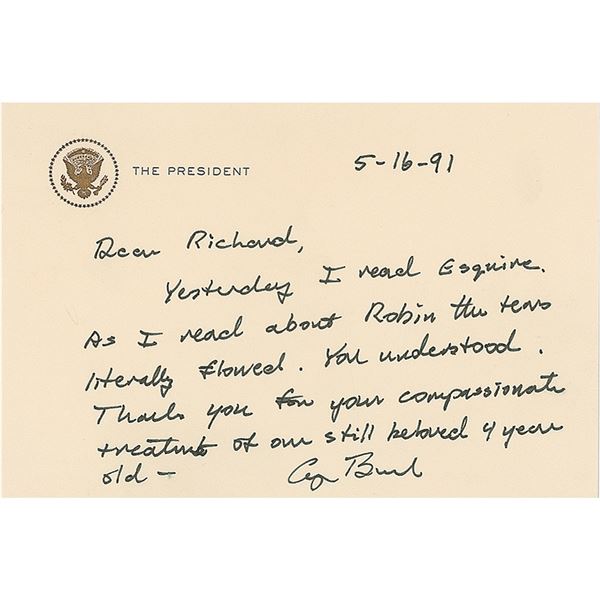 THE PRESIDENT
5-16-91
Dear Richard,
Yesterday I read Esquire.
As I read about Robin the tears
literally flowed. You understood.
Thank you for your compassionate
treatment of our still beloved 4 year
old — G Bush